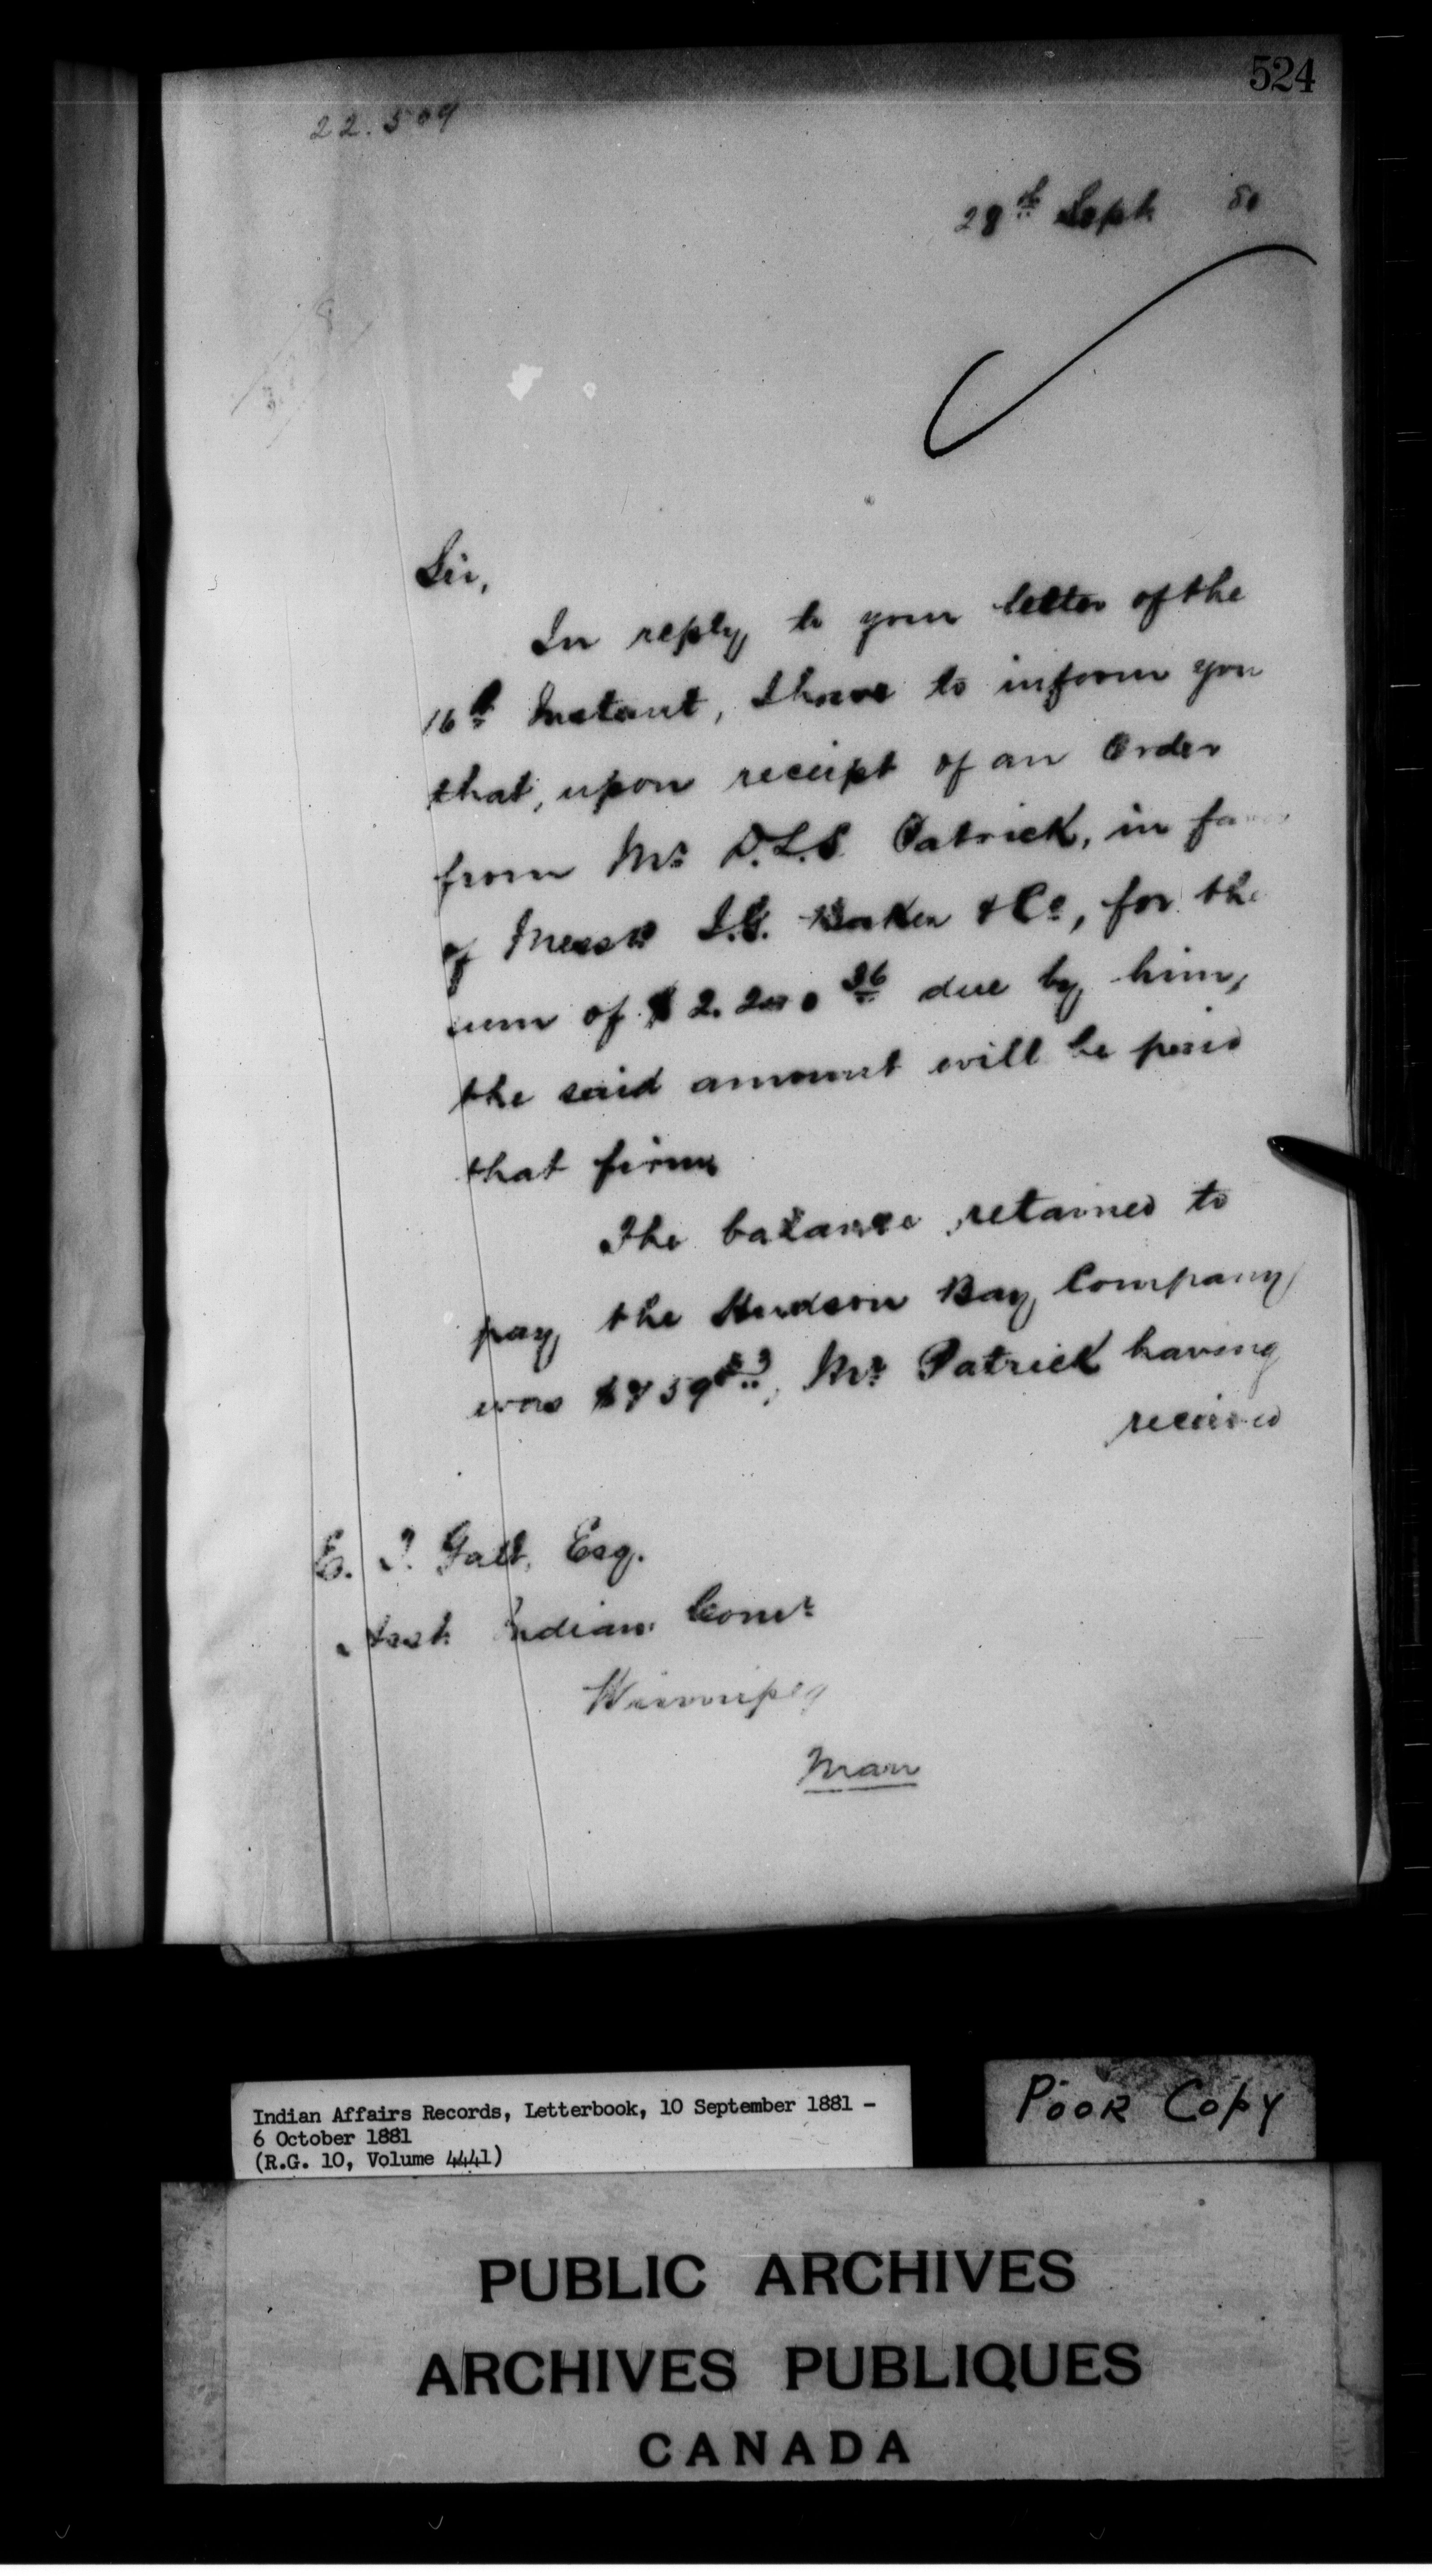 524
22.509
28th Sept 80
Sir,
In reply to your letter of the
16th Instant, I have to inform you
that, upon receipt of an Order
from Mr. Patrick, in
of Messrs I.G. Baker & Co, for the
sum of $ due by him,
the said amount will be paid
that firm
The balance retained to
pay the Hudson Bay Company
was Mr. Patrick having
received
E. T. Galt, Esq.
Asst. Indian Comr
Winnipeg
Man
Indian Affairs Records, Letterbook, 10 September 1881 -
6 October 1881
(R.G. 10, Volume 4441)
POOR COPY
PUBLIC ARCHIVES
ARCHIVES PUBLIQUES
CANADA